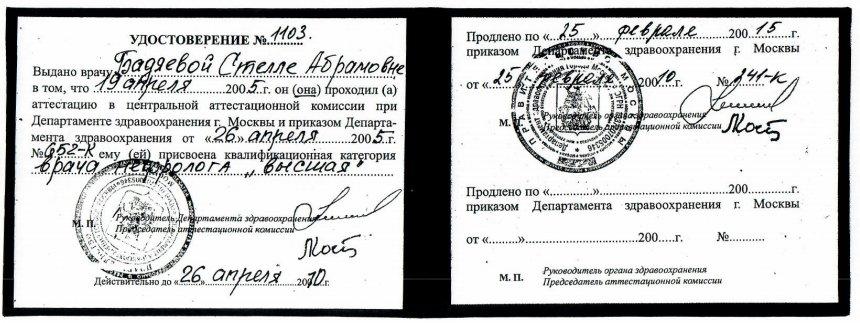 УДОСТОВЕРЕНИЕ № 1103.
Выдано врачу Бадяевой Стелле Абрамовне
в том, что 19 апреля 2005 г. он (она) проходил (а)
аттестацию в центральной аттестационной комиссии при
Департаменте здравоохранения г. Москвы и приказом Департа-
мента здравоохранения от «26» апреля 2005 г.
№ 652-К ему (ей) присвоена квалификационная категория
врача нефролога „высшая"
М. П. Руководитель Департамента здравоохранения
Председатель аттестационной комиссии
Действительно до «26» апреля 2010 г.
Продлено по «25» февраля 200 15 г.
приказом Департамента здравоохранения г. Москвы
от «25» февраля 2010 г. № 241-К
М. П. Руководитель органа здравоохранения
Председатель аттестационной комиссии
Продлено по «........» .............................. 200......г.
приказом Департамента здравоохранения г. Москвы
от «........» .............................. 200.....г. №...........
М. П. Руководитель органа здравоохранения
Председатель аттестационной комиссии